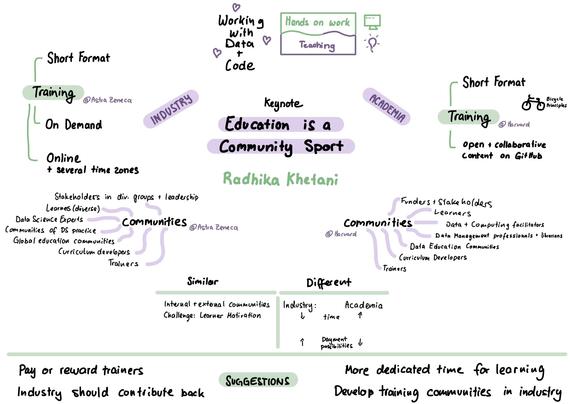 Working
with
Data
+
Code
Hands on work
Teaching
Short Format
Training
@Astra Zeneca
On Demand
Online
+ several time zones
INDUSTRY
Keynote
Education is a
Community Sport
Radhika Khetani
ACADEMIA
Short Format
Bicycle
Principles
Training
@Harvard
open + collaborative
content on GitHub
Stakeholders in div. groups + leadership
Learners (diverse)
Data Science Experts
Communities of DS practice
Global education communities
Curriculum developers
Trainers
Communities
@Astra Zeneca
Communities
@Harvard
Funders + Stakeholders
Learners
Data + Computing facilitators
Data Management professionals + librarians
Data Education Communities
Curriculum Developers
Trainers
Similar
Different
Internal external communities
Challenge: Learner Motivation
Industry: Academia
↓ time ↑
↑ Payment possibilities ↓
Pay or reward trainers
Industry should contribute back
SUGGESTIONS
More dedicated time for learning
Develop training communities in industry